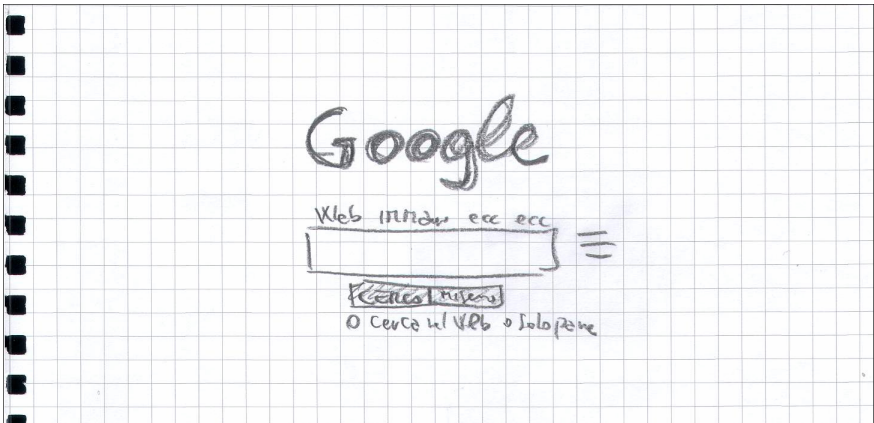 Google
Web immagini ecc ecc
Cerca
O cerca nel Web o solo pane